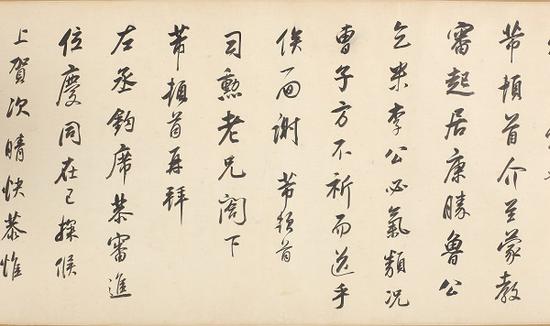 芾頓首介至蒙教
審起居康勝魯公
乞米李公必氣類況
曹子方不祈而送乎
俟面謝 芾頓首
司勳老兄閣下
芾頓首再拜
左丞鈞席恭審進
位慶同在已探候
上賀次晴快恭惟